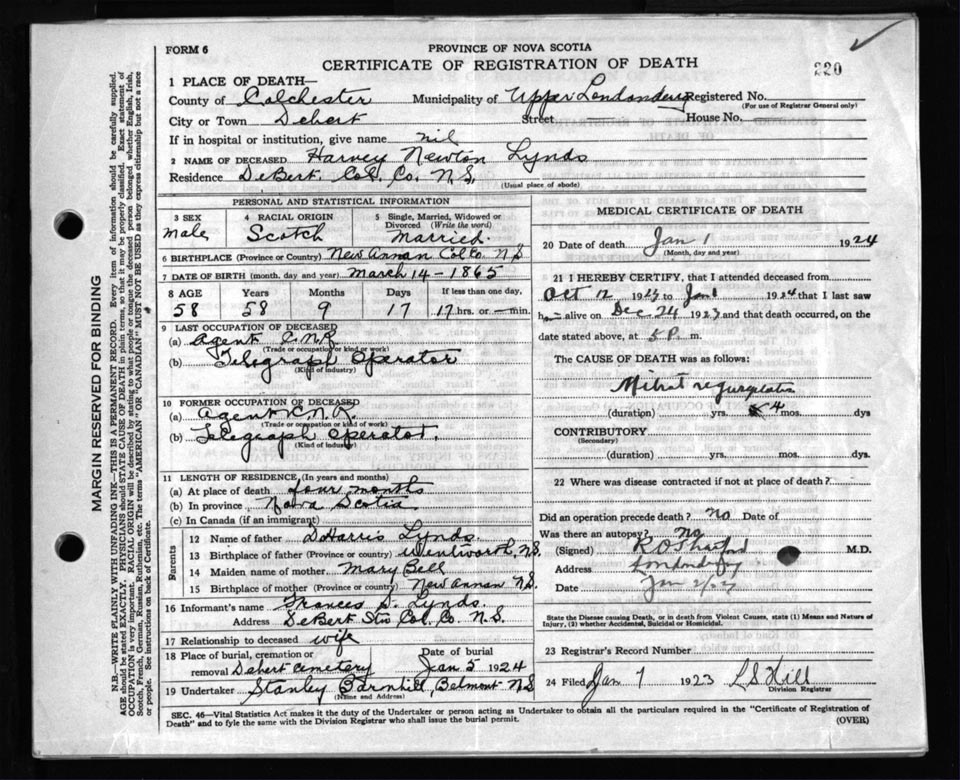 FORM 6
PROVINCE OF NOVA SCOTIA
CERTIFICATE OF REGISTRATION OF DEATH
220
1 PLACE OF DEATH—
County of Colchester Municipality of Upper Londonderry Registered No.
(For use of Registrar General only)
City or Town Debert Street House No.
If in hospital or institution, give name nil
2 NAME OF DECEASED Harvey Newton Lynds
Residence DeBert Col. Co. N.S.
(Usual place of abode)
PERSONAL AND STATISTICAL INFORMATION
3 SEX
male
4 RACIAL ORIGIN
Scotch
5 Single, Married, Widowed or Divorced (Write the word)
Married.
6 BIRTHPLACE (Province or Country) New Annan Col Co. N.S
7 DATE OF BIRTH (month, day and year) March 14 - 1865
8 AGE Years Months Days If less than one day,
58 58 9 17 17 hrs. or min.
9 LAST OCCUPATION OF DECEASED
(a) Agent C.N.R.
(Trade or occupation or kind of work)
(b) Telegraph Operator
(Kind of industry)
10 FORMER OCCUPATION OF DECEASED
(a) Agent C.N.R.
(Trade or occupation or kind of work)
(b) Telegraph Operator.
(Kind of industry)
11 LENGTH OF RESIDENCE (In years and months)
(a) At place of death four months
(b) In province Nova Scotia
(c) In Canada (if an immigrant)
Parents
12 Name of father D Harris Lynds.
13 Birthplace of father (Province or country) Wentworth, N.S.
14 Maiden name of mother Mary Bell
15 Birthplace of mother (Province or country) New Annan N.S.
16 Informant's name Frances S. Lynds.
Address DeBert Stn Col. Co. N.S.
17 Relationship to deceased wife
18 Place of burial, cremation or removal Debert Cemetery Date of burial Jan 5 1924
19 Undertaker Stanley Barnhill, Belmont N.S
(Name and Address)
MEDICAL CERTIFICATE OF DEATH
20 Date of death Jan 1 1924
(Month, day and year)
21 I HEREBY CERTIFY, that I attended deceased from
Oct 12 1923 to Jan 1 1924 that I last saw
h alive on Dec 24 1923 and that death occurred, on the
date stated above, at 5 P. m.
The CAUSE OF DEATH was as follows:
Mitral
(duration) yrs. 4 mos. dys
CONTRIBUTORY
(Secondary)
(duration) yrs. mos. dys.
22 Where was disease contracted if not at place of death?
Did an operation precede death? No Date of
Was there an autopsy? No
(Signed) M.D.
Address Londonderry
Date Jan 2/
State the Disease causing Death, or in death from Violent Causes, state (1) Means and Nature of
Injury, (2) whether Accidental, Suicidal or Homicidal.
23 Registrar's Record Number
24 Filed Jan 7 1923 L S Hill
Division Registrar
SEC. 46—Vital Statistics Act makes it the duty of the Undertaker or person acting as Undertaker to obtain all the particulars required in the "Certificate of Registration of
Death" and to fyle the same with the Division Registrar who shall issue the burial permit. (OVER)
MARGIN RESERVED FOR BINDING
N.B.—WRITE PLAINLY WITH UNFADING INK—THIS IS A PERMANENT RECORD. Every item of information should be carefully supplied.
AGE should be stated EXACTLY. PHYSICIANS should STATE CAUSE OF DEATH in plain terms, so that it may be properly classified. Exact statement of
OCCUPATION is very important. RACIAL ORIGIN will be described by stating to what people or tongue the deceased person belonged whether English, Irish,
Scotch, French, German, Russian, Ruthenian, etc. The terms "AMERICAN" OR "CANADIAN" MUST NOT BE USED as they express citizenship but not a race
or people. See instructions on back of Certificate.